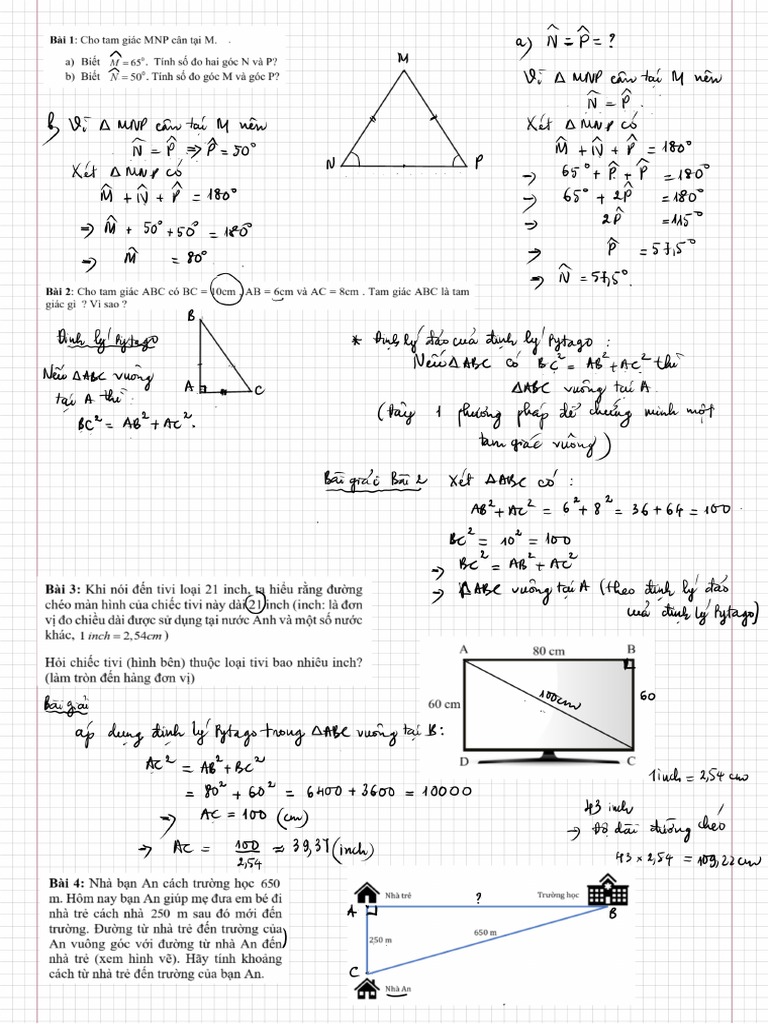 Bài 1: Cho tam giác MNP cân tại M.
a) Biết M̂ = 65°. Tính số đo hai góc N và P?
b) Biết N̂ = 50°. Tính số đo góc M và góc P?
M
N
P
a) N̂ = P̂ = ?
Vì Δ MNP cân tại M nên
N̂ = P̂.
Xét Δ MNP có
M̂ + N̂ + P̂ = 180°
→ 65° + P̂ + P̂ = 180°
→ 65° + 2P̂ = 180°
→ 2P̂ = 115°
→ P̂ = 57,5°
→ N̂ = 57,5°.
b) Vì Δ MNP cân tại M nên
N̂ = P̂ ⇒ P̂ = 50°
Xét Δ MNP có
M̂ + N̂ + P̂ = 180°
→ M̂ + 50° + 50° = 180°
→ M̂ = 80°
Bài 2: Cho tam giác ABC có BC = 10cm , AB = 6cm và AC = 8cm . Tam giác ABC là tam
giác gì ? Vì sao ?
Định lý Pytago
Nếu ΔABC vuông
tại A thì:
BC² = AB² + AC².
B
A
C
* Định lý đảo của định lý Pytago :
Nếu ΔABC có BC² = AB² + AC² thì
ΔABC vuông tại A.
(đây 1 phương pháp để chứng minh một
tam giác vuông)
Bài giải Bài 2 Xét ΔABC có :
AB² + AC² = 6² + 8² = 36 + 64 = 100
BC² = 10² = 100
→ BC² = AB² + AC²
→ ΔABC vuông tại A (theo định lý đảo
của định lý Pytago)
Bài 3: Khi nói đến tivi loại 21 inch, ta hiểu rằng đường
chéo màn hình của chiếc tivi này dài 21 inch (inch: là đơn
vị đo chiều dài được sử dụng tại nước Anh và một số nước
khác, 1 inch = 2,54cm )
Hỏi chiếc tivi (hình bên) thuộc loại tivi bao nhiêu inch?
(làm tròn đến hàng đơn vị)
A
80 cm
B
60 cm
100cm
60
D
C
Bài giải
áp dụng định lý Pytago trong ΔABC vuông tại B:
AC² = AB² + BC²
= 80² + 60² = 6400 + 3600 = 10000
→ AC = 100 (cm)
→ AC = 100/2,54 ≈ 39,37 (inch)
1inch = 2,54 cm
43 inch
→ Độ dài đường chéo
43 × 2,54 = 109,22 cm
Bài 4: Nhà bạn An cách trường học 650
m. Hôm nay bạn An giúp mẹ đưa em bé đi
nhà trẻ cách nhà 250 m sau đó mới đến
trường. Đường từ nhà trẻ đến trường của
An vuông góc với đường từ nhà An đến
nhà trẻ (xem hình vẽ). Hãy tính khoảng
cách từ nhà trẻ đến trường của bạn An.
Nhà trẻ
?
Trường học
A
B
250 m
650 m
C
Nhà An